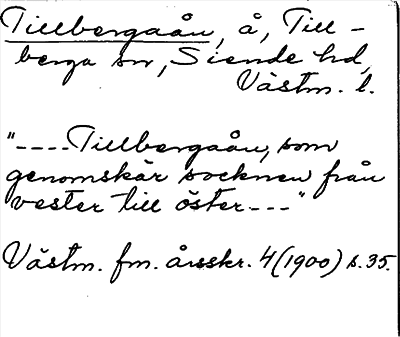 Tillbergaån, å, Till-
berga sn, Siende hd,
Västm. l.
"----Tillbergaån, som
genomskär socknen från
vester till öster---"
Västm. fm. årsskr. 4 (1900) s. 35.